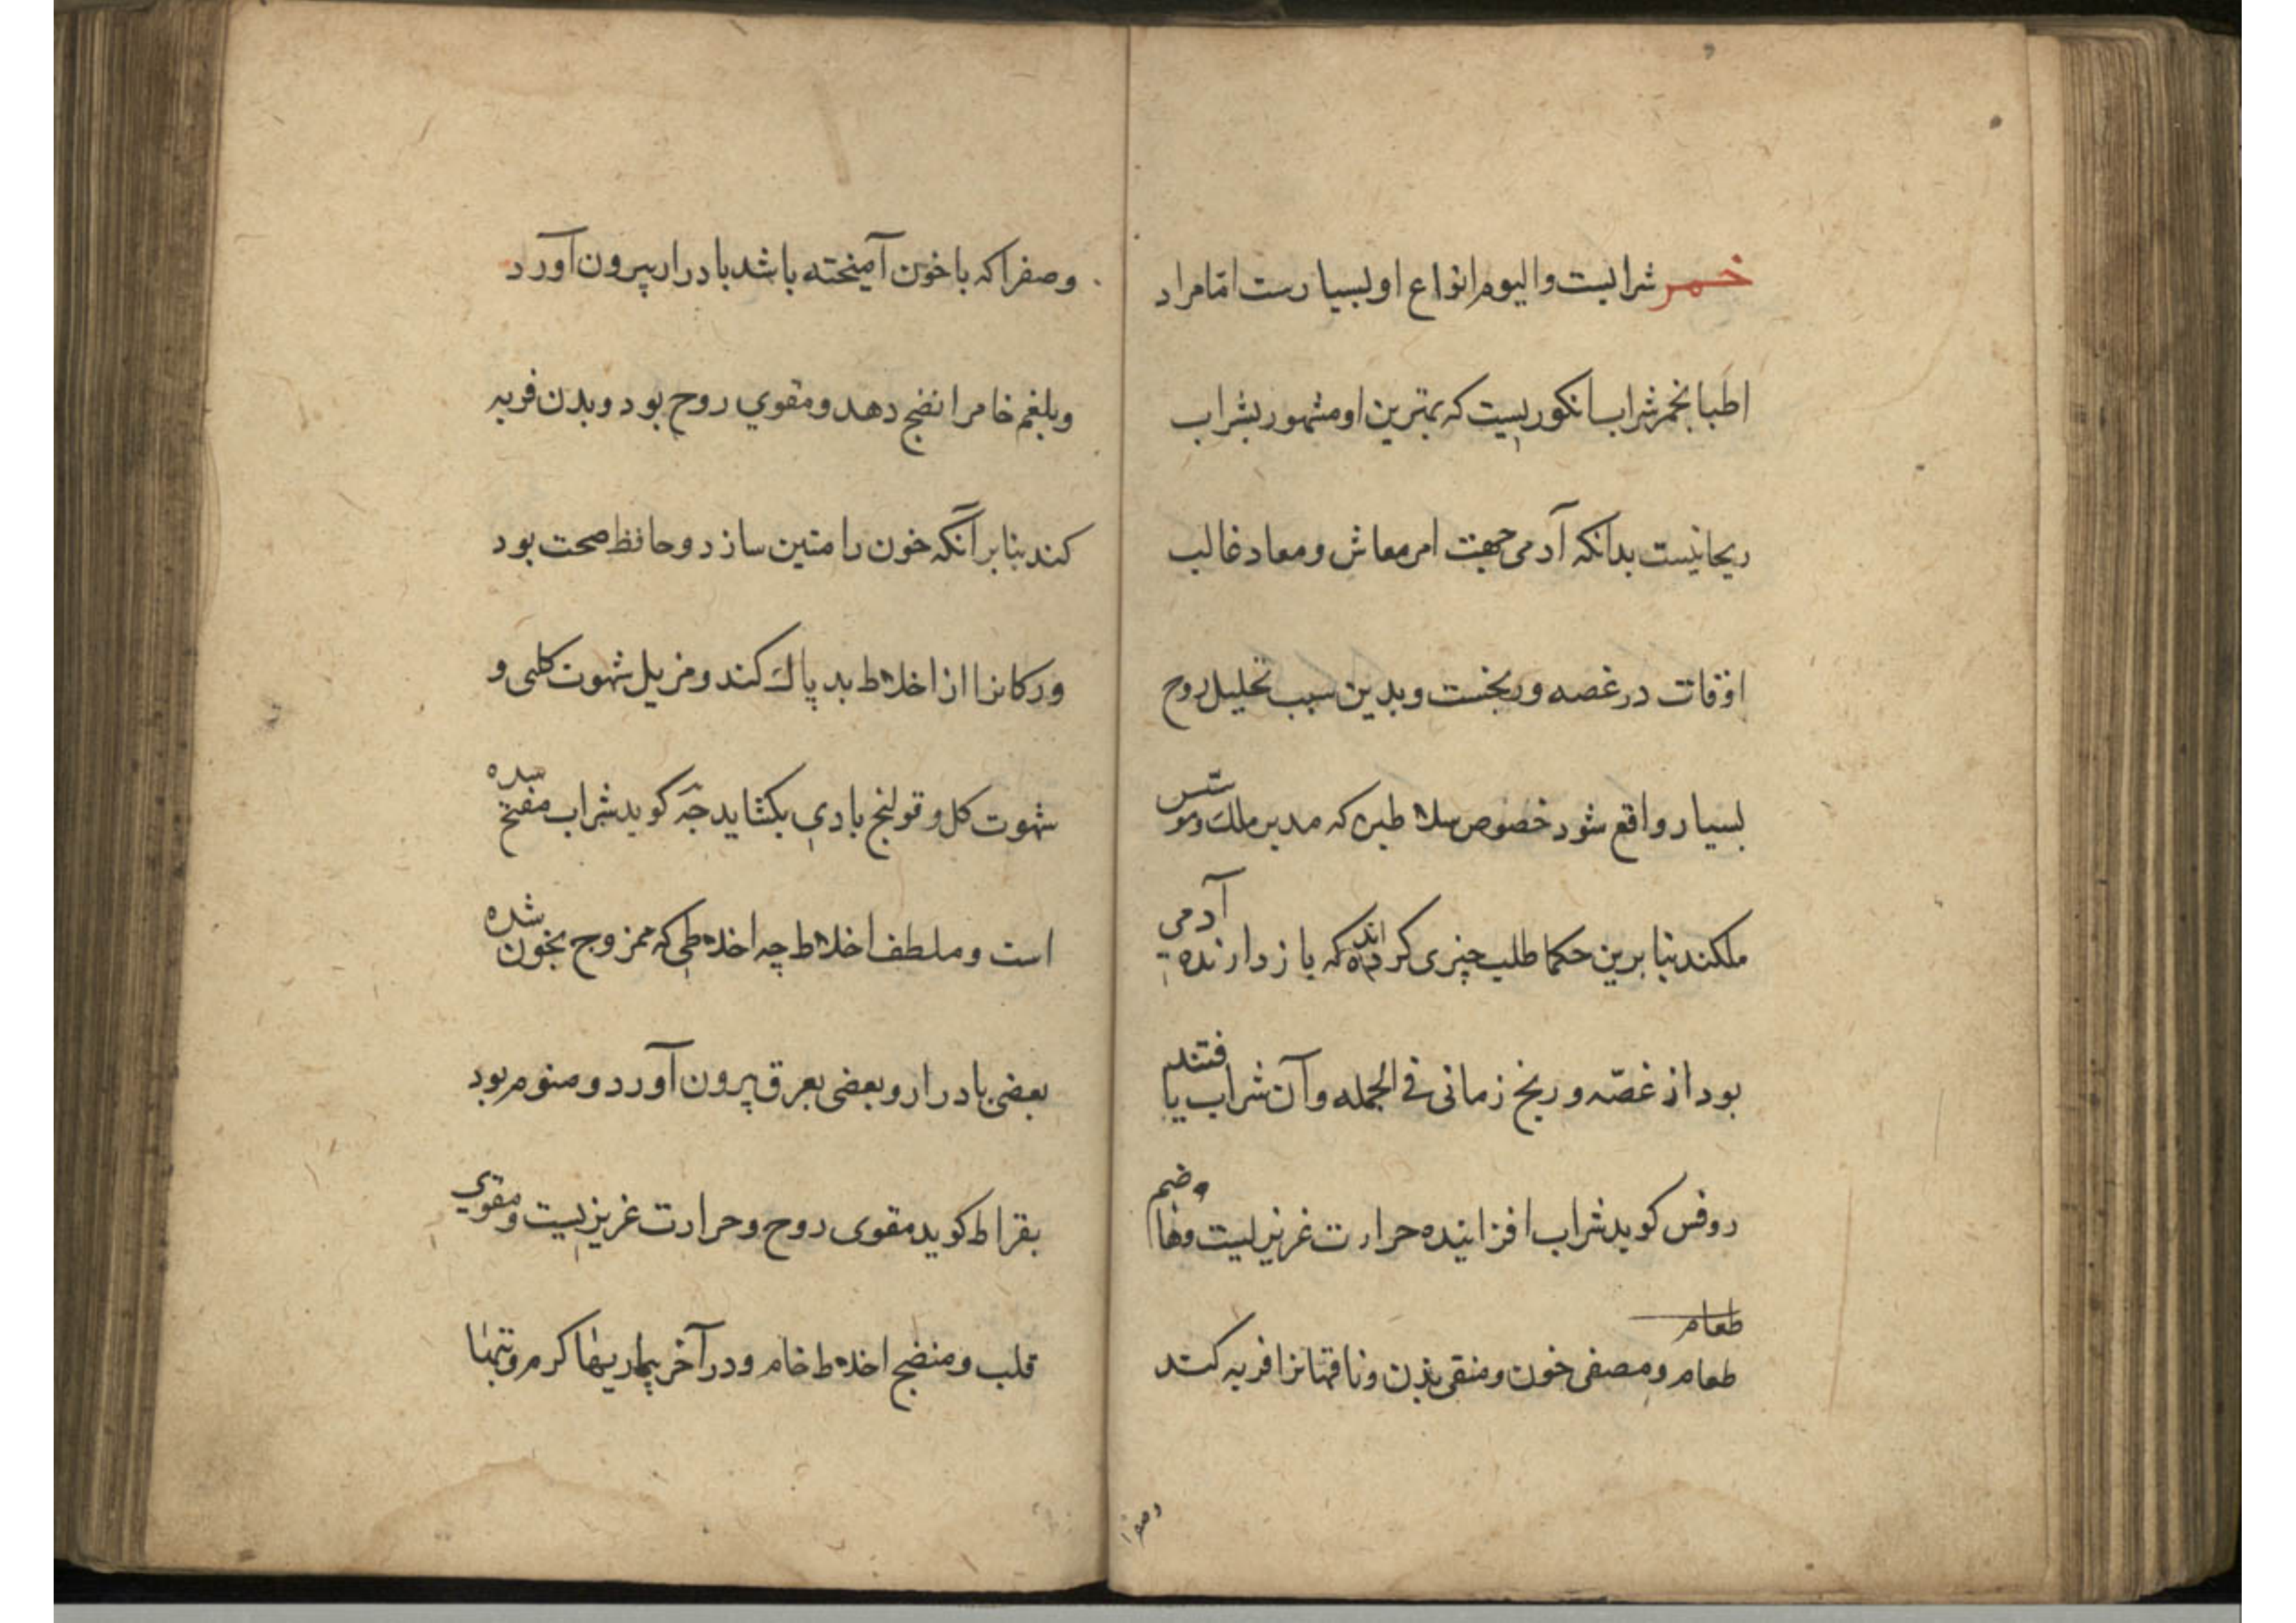 خمر شرابیست والیوم انواع او بسیارست امّا مراد
اطبا بخمر شراب انکوریست که بهترین او مشهور بشراب
ریحانیست بدانکه آدمی جهت امر معاش و معاد غالب
اوقات در غصه و رنجست و بدین سبب تحلیل روح
بسیار واقع شود خصوص سلاطین که مدبر ملک و موسّس
ملکند بنا برین حکما طلب چیزی کرده‌اند که باز دارنده آدمی
بود از غصّه و رنج زمانی فی الجمله و آن شراب یافتند
روفس کوید شراب افزاینده حرارت غریزیست و هاضم
طعام
طعام و مصفی خون و منقی بدن و ناقهانرا فربه کند
و صفرا
و صفرا که با خون آمیخته باشد بادرار بیرون آورد
و بلغم خام را نضج دهد و مقوی روح بود و بدن فربه
کند بنا بر آنکه خون را متین سازد و حافظ صحت بود
و رکانرا از اخلاط بد پاک کند و مزیل شهوت کلبی و
شهوت کل و قولنج بادی بکشاید جه کوید شراب مفتح سده
است و ملطف اخلاط چه اخلاطی که ممزوج بخون شده
بعضی بادرار و بعضی بعرق بیرون آورد و منوم بود
بقراط کوید مقوی روح و حرارت غریزیست و مقوی
قلب و منضج اخلاط خام و در آخر بیماریها کرم و تبها